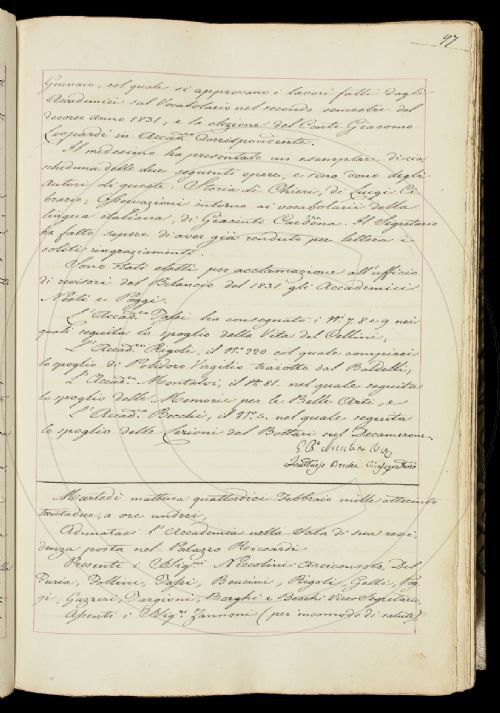 97
Gennaio, col quale si approvano i lavori fatti dagli
Accademici sul Vocabolario nel secondo semestre del
decorso anno 1831, e la elezione del Conte Giacomo
Leopardi in Accad.co Corrispondente.
Il medesimo ha presentato un esemplare di cia
scheduna delle due seguenti opere, e sono dono degli
Autori di queste: Storia di Chieri, di Luigi Ci
brario; Osservazioni intorno ai vocabolarii della
lingua italiana, di Giacinto Cardena. Il Segretario
ha fatto sapere di aver già rendute per lettera i
soliti ringraziamenti.
Sono stati eletti per acclamazione all'uffizio
di revisori del Bilancio del 1831 gli Accademici
Nesti e Poggi.
L'Accad.co Tassi ha consegnati i N.i 7. 8 e 9 nei
quali seguita lo spoglio della Vita del Cellini;
L'Accad.co Rigoli, il N.o 220 col quale comincia
lo spoglio di Polidoro Vergilio tradotto dal Baldelli;
L'Accad.co Montalvi, il N.o 81. nel quale seguita
lo spoglio delle Memorie per le Belle Arti e
L'Accad.co Becchi, il N.o 3. nel quale seguita
lo spoglio delle Lezioni del Bottari sul Decamerone.
Fruttuoso Becchi
Martedì mattina quattordici Febbraio mille ottocento
trentadue, a ore undici,
Adunatasi l'Accademia nella Sala di sua resi
denza posta nel Palazzo Riccardi
Presenti i SS.ri Niccolini Arciconsolo, Del
Furia, Follini, Tassi, Bencini, Rigoli, Gelli, Pog
gi, Gazzeri, Targioni, Borghi e Becchi Vice-Segretario,
Assenti i Sig.ri Zannoni (per incomodo di salute)